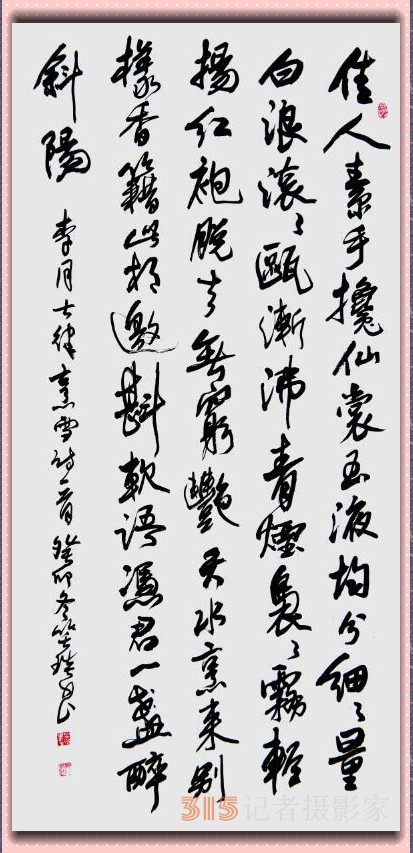 佳人素手攙仙裳玉液均分細々量
白浪滚々甌漸沸青煙裊々霧輕
揚红袍脱去無窮艷天水烹来别
樣香籍此相邀斟軟語憑君一盞醉
斜陽
李月七律烹雪诗一首癸卯冬
315记者摄影家